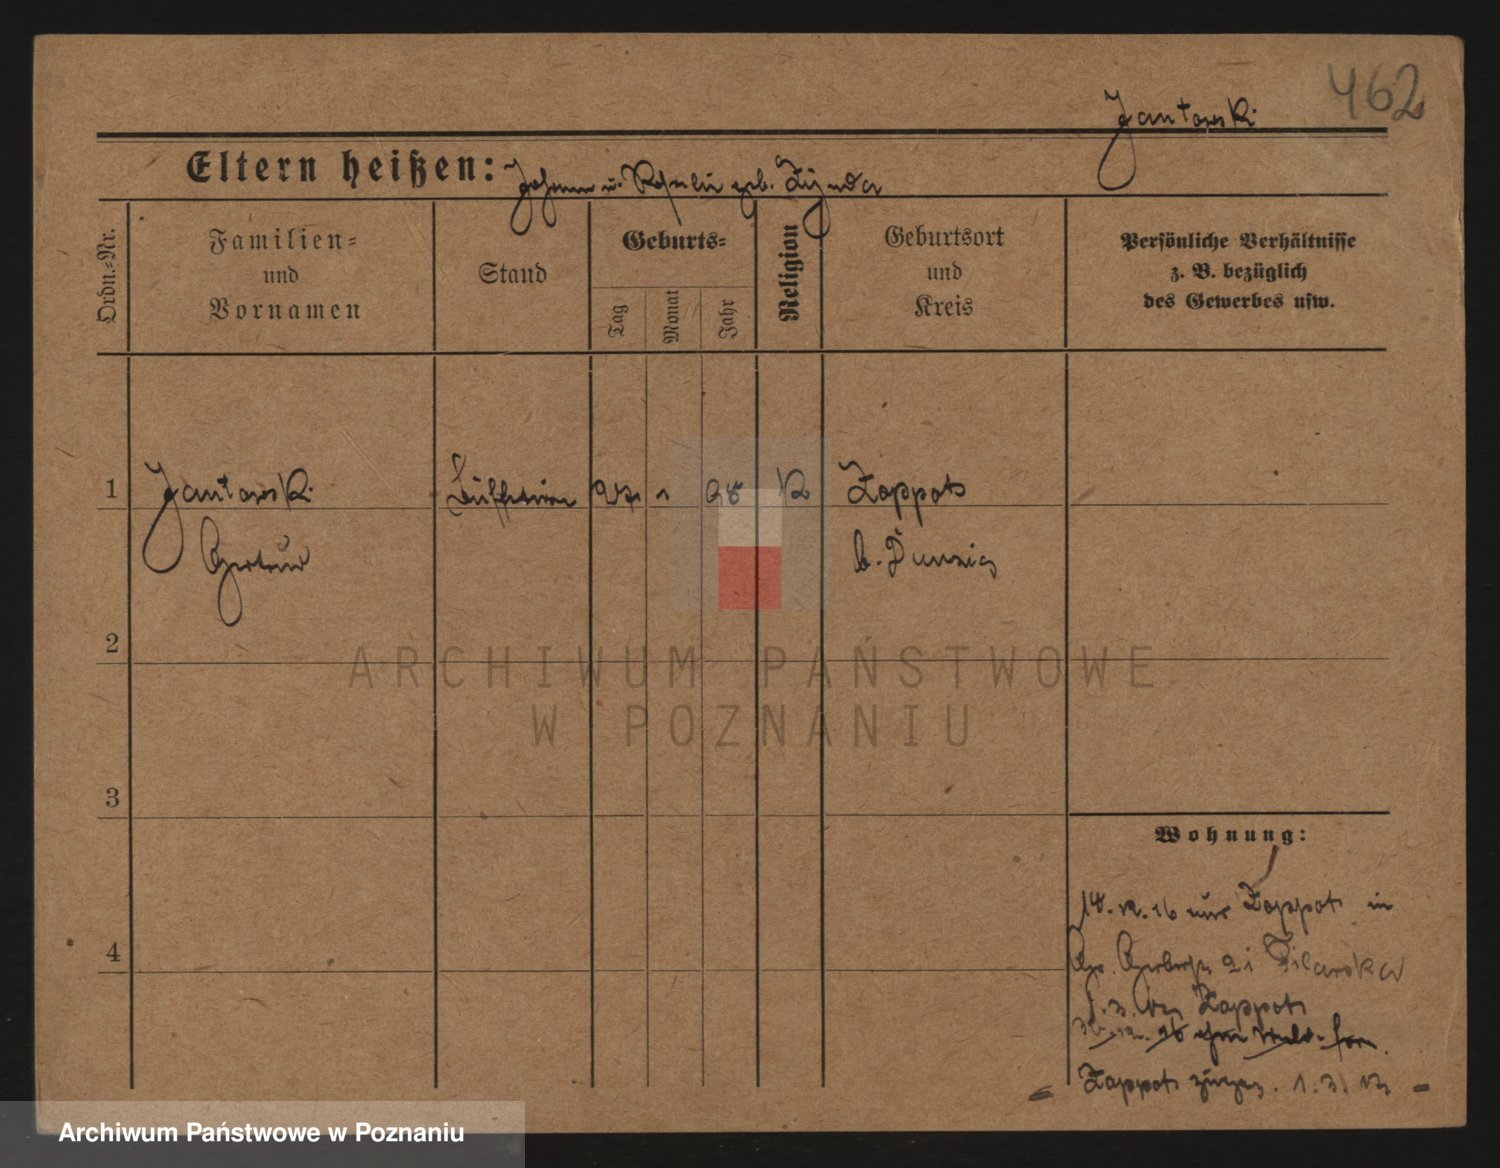 462
Jantowski
Eltern heißen: Johann u. Rosalie geb.
Ordn.-Nr.
Familien-
und
Vornamen
Stand
Geburts-
Tag
Monat
Jahr
Religion
Geburtsort
und
Kreis
Persönliche Verhältnisse
z. B. bezüglich
des Gewerbes usw.
1
Jantowski
Gertrud
27
1
98
K
Zoppot
b. Danzig
2
3
4
Wohnung:
18. 12. 16 aus Zoppot in
21
Zoppot
Zoppot 1. 3. 17
ARCHIWUM PAŃSTWOWE
W POZNANIU
Archiwum Państwowe w Poznaniu